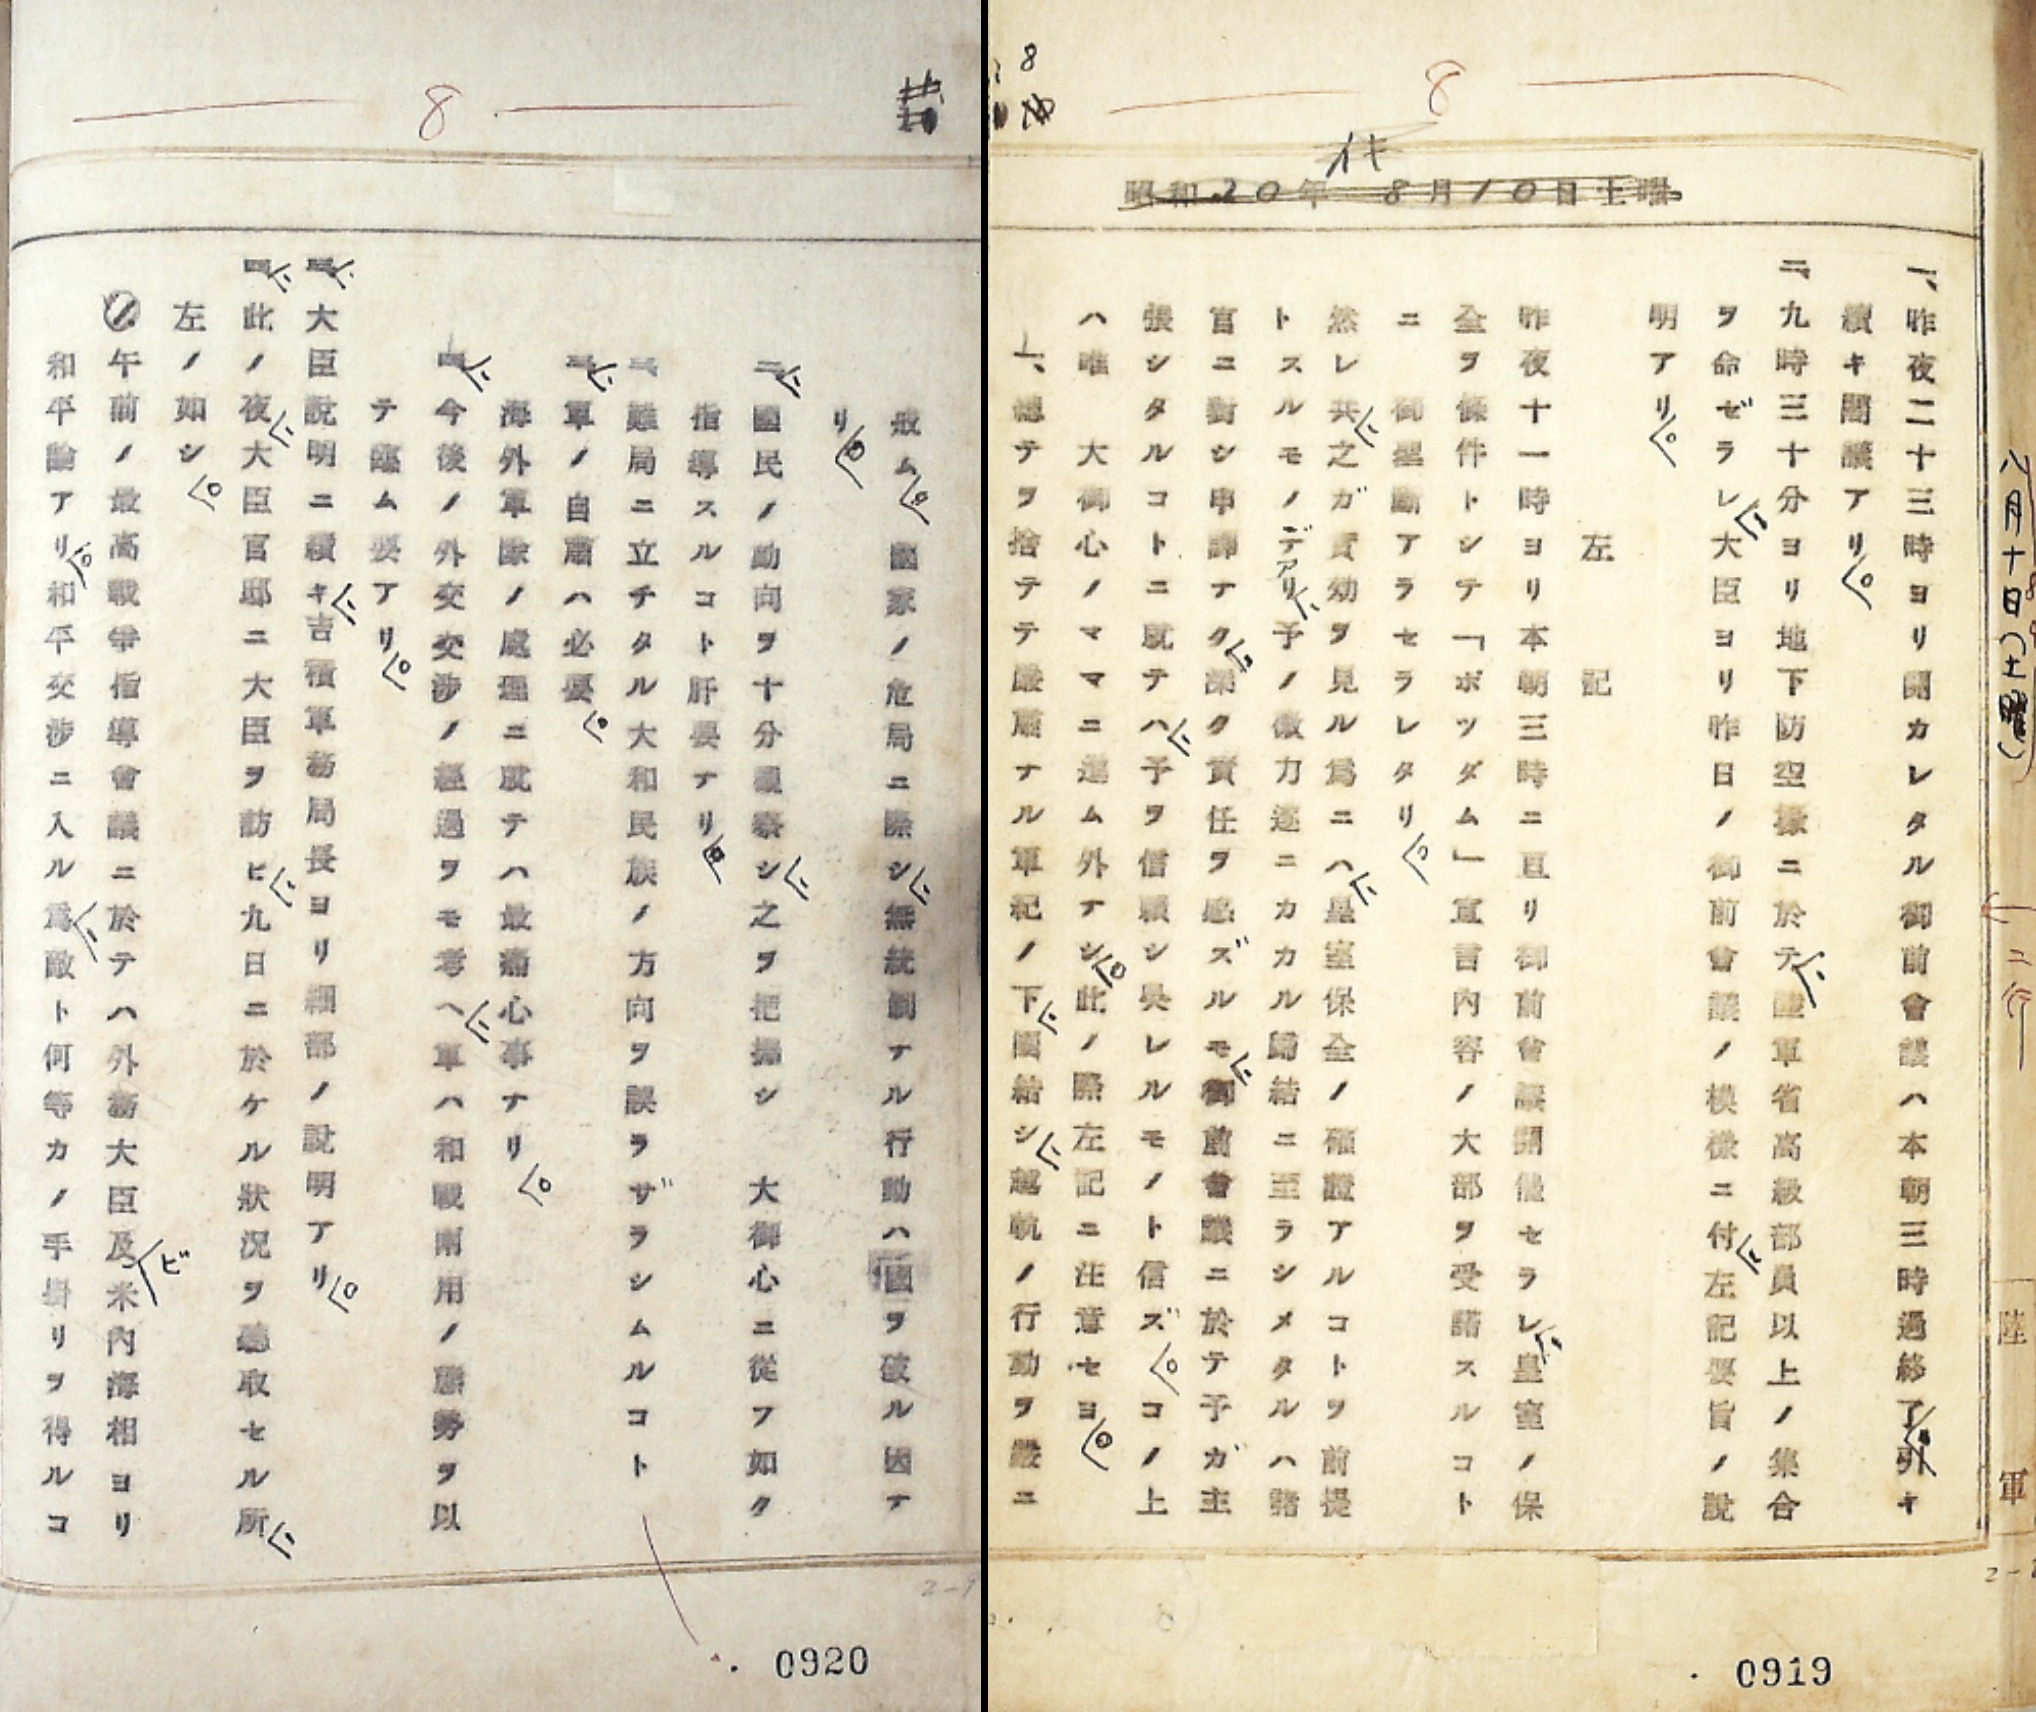 8
8
昭和20年 8月10日土曜
八月十日(土曜)
二行
陸軍
一、昨夜二十三時ヨリ開カレタル御前會議ハ本朝三時過終了、引キ
續キ閣議アリ。
二、九時三十分ヨリ地下防空壕ニ於テ、陸軍省高級部員以上ノ集合
ヲ命ゼラレ、大臣ヨリ昨日ノ御前會議ノ模樣ニ付、左記要旨ノ說
明アリ。
左記
昨夜十一時ヨリ本朝三時ニ亘リ御前會議開催セラレ、皇室ノ保
全ヲ條件トシテ「ポツダム」宣言內容ノ大部ヲ受諾スルコト
ニ 御聖斷アラセラレタリ。
然レ共、之ガ實効ヲ見ル爲ニハ、皇室保全ノ確證アルコトヲ前提
トスルモノデアリ、予ノ微力遂ニカカル歸結ニ至ラシメタルハ諸
官ニ對シ申譯ナク、深ク責任ヲ感ズルモ、御前會議ニ於テ予ガ主
張シタルコトニ就テハ、予ヲ信賴シ吳レルモノト信ズ。コノ上
ハ唯 大御心ノママニ進ム外ナシ。此ノ際左記ニ注意セヨ。
一、總テヲ捨テテ嚴肅ナル軍紀ノ下、團結シ、越軌ノ行動ヲ嚴ニ
0919
8
戒ム。國家ノ危局ニ際シ、無統制ナル行動ハ國ヲ破ル因ナ
リ。
二、國民ノ動向ヲ十分觀察シ、之ヲ把握シ 大御心ニ從フ如ク
指導スルコト肝要ナリ。
難局ニ立チタル大和民族ノ方向ヲ誤ラザラシムルコト
三、軍ノ自肅ハ必要。
海外軍隊ノ處理ニ就テハ最痛心事ナリ。
四、今後ノ外交交涉ノ經過ヲモ考ヘ、軍ハ和戰兩用ノ態勢ヲ以
テ臨ム要アリ。
三、大臣說明ニ續キ、吉積軍務局長ヨリ細部ノ說明アリ。
四、此ノ夜、大臣官邸ニ大臣ヲ訪ヒ、九日ニ於ケル狀況ヲ聽取セル所、
左ノ如シ。
午前ノ最高戰爭指導會議ニ於テハ外務大臣及ビ米內海相ヨリ
和平論アリ。和平交涉ニ入ル爲、敵ト何等カノ手掛リヲ得ルコ
0920